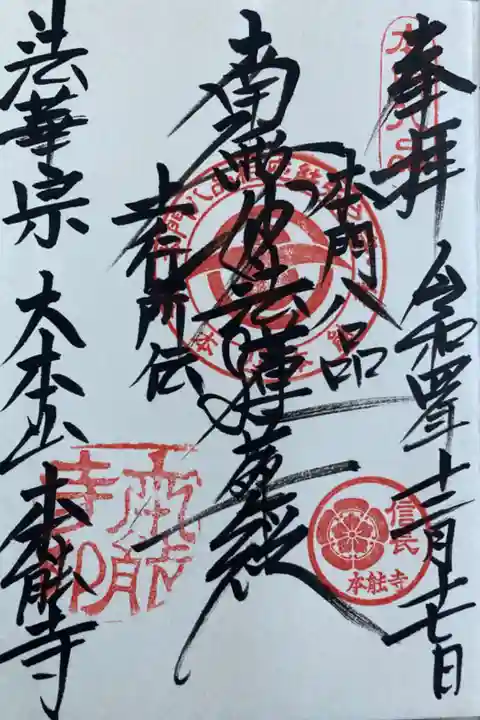 奉拝
令和四年十二月十七日
本門八品
南無妙法蓮華経
上行所伝
法華宗 大本山 本能寺
信長
本能寺
本能寺印